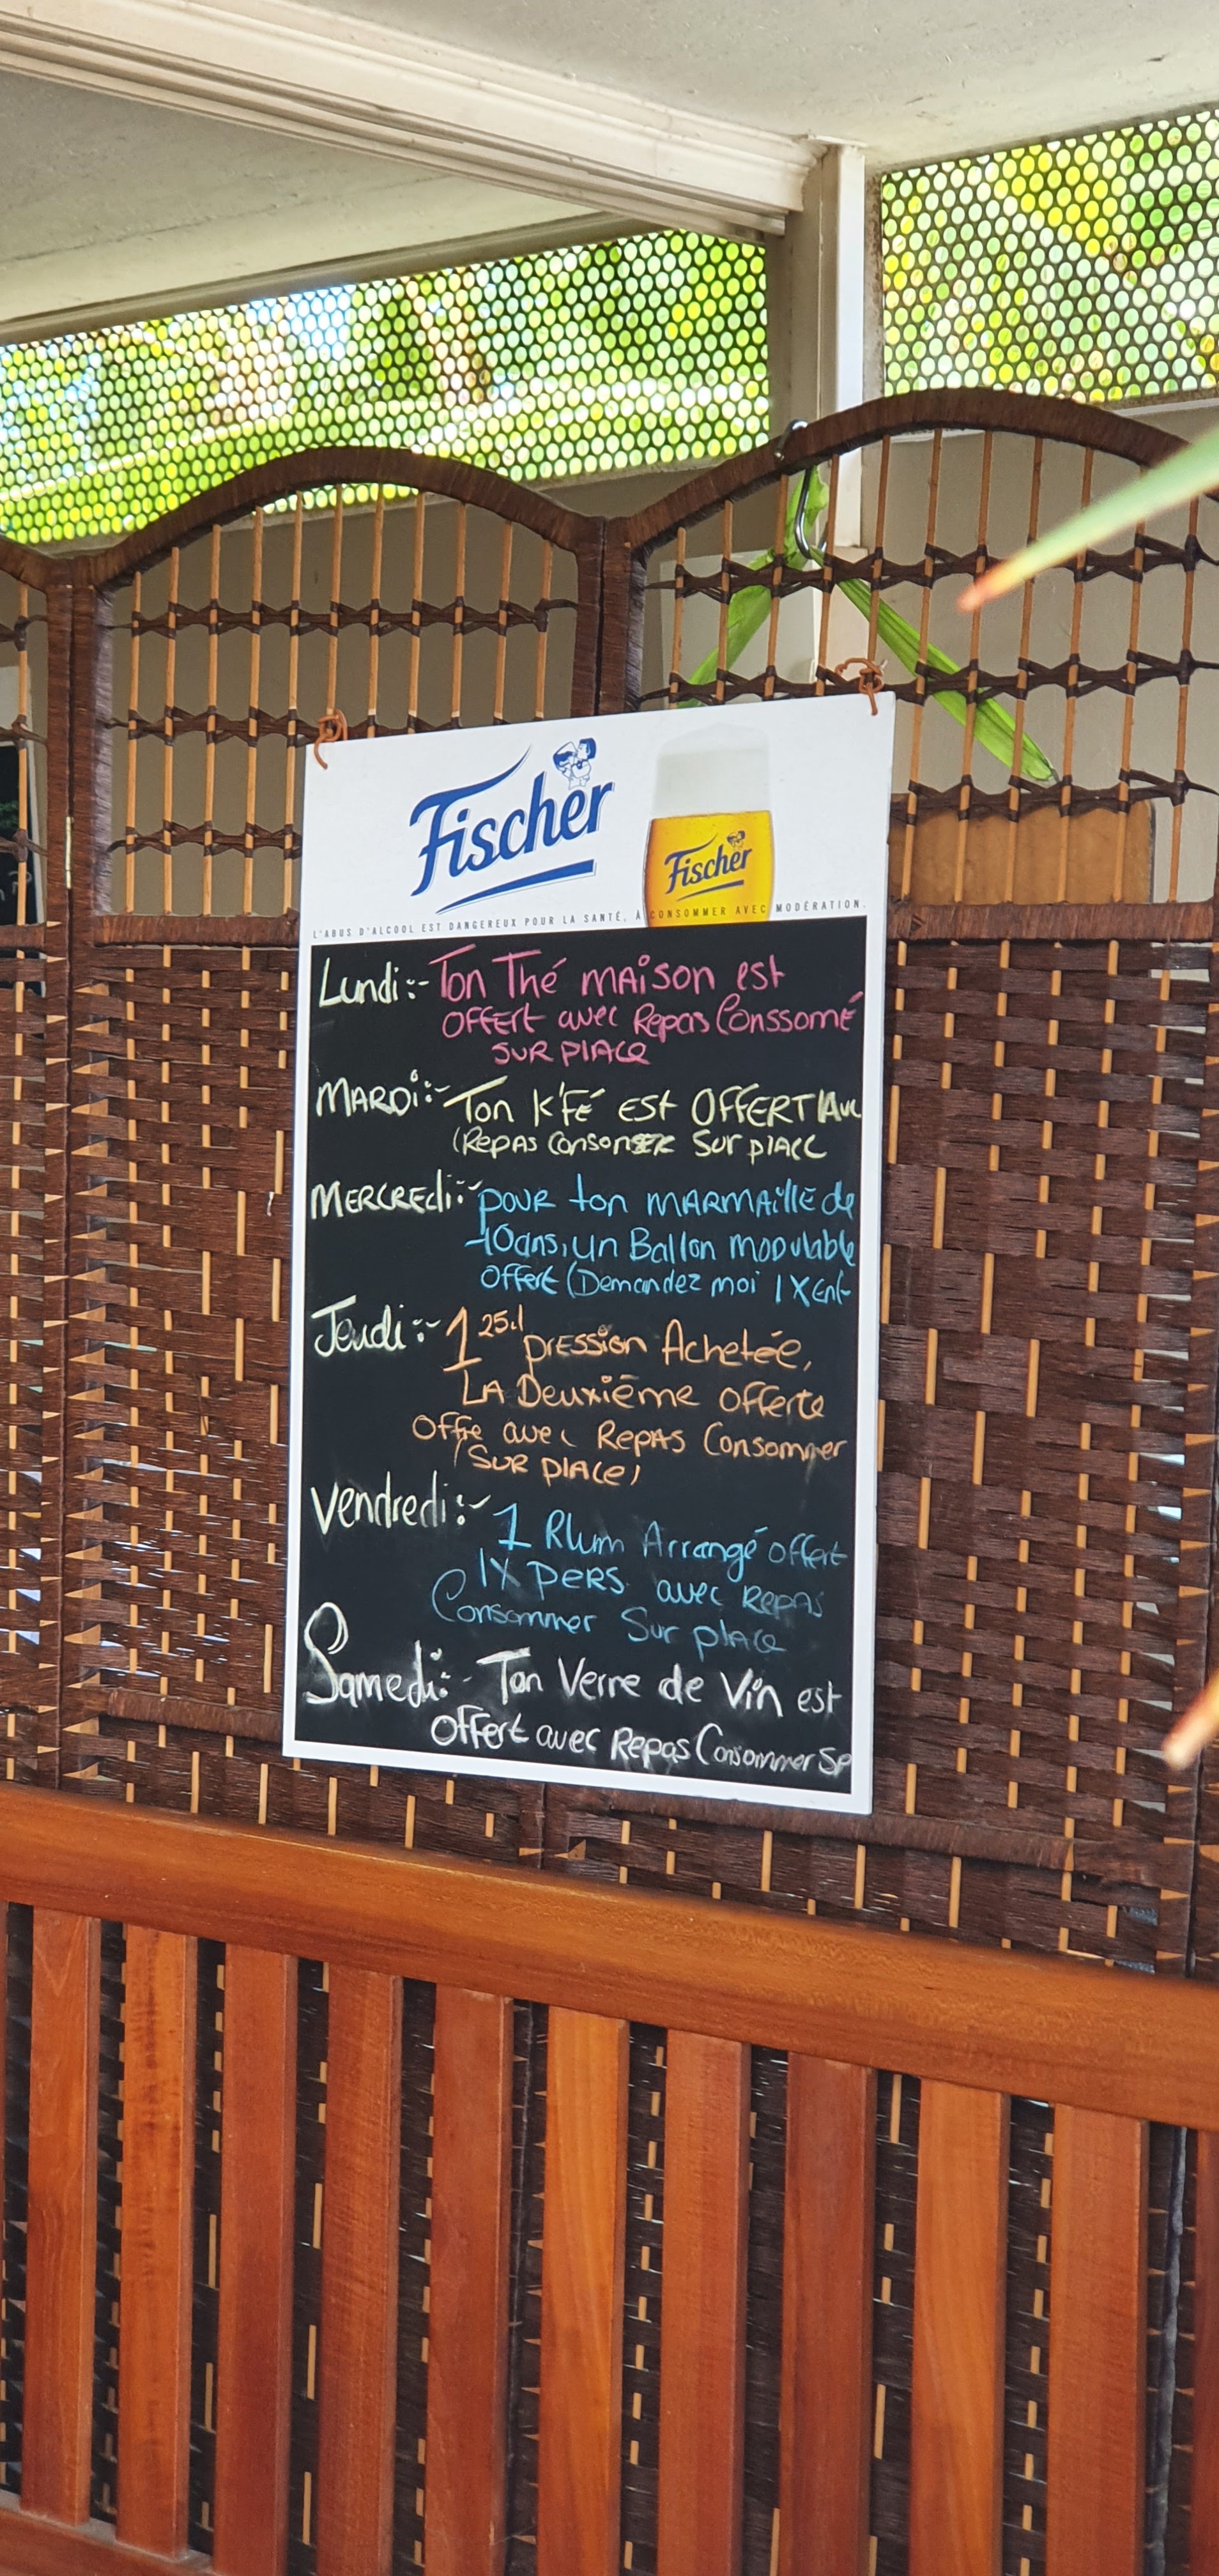 Fischer
Fischer
L'ABUS D'ALCOOL EST DANGEREUX POUR LA SANTÉ, À CONSOMMER AVEC MODÉRATION.
Lundi :- Ton Thé MAison est
OFFERt avec Repas Conssomé
SUR PlACe
MARDi :- Ton K'FÉ ESt OFFERT Avc
(RepAs Sur plACe
MERCREdi :- pour ton MARMAillE de
-10ans, un Ballon Modulable
OFFert (Demandez moi 1 X Enf-
Jeudi :- 1 25cl pression Achetée,
LA Deuxième offerte
Offre avec RepAs Consommer
(SUR plACe)
Vendredi :- 1 Rhum Arrangé offert
1X PERS. avec REPAS
Consommer Sur plAce
Samedi :- Ton Verre de Vin est
OFFert avec Repas Consommer SP